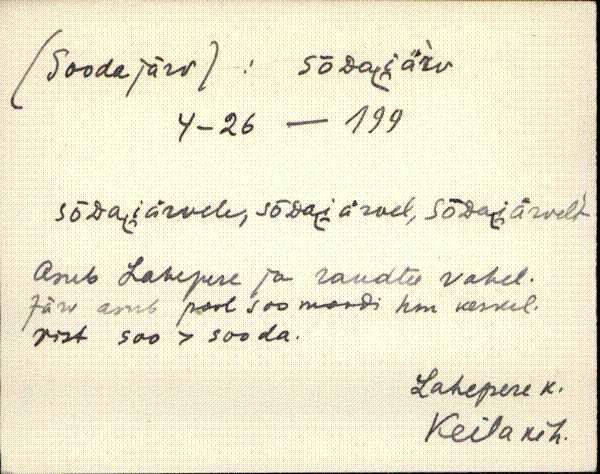 (Sooda järv) : sōᴅa͔i̯ärv
4-26 — 199
sōᴅa͔i̯ärvele, sōᴅa͔i̯ärvel, sōᴅa͔i̯ärvelt
Asub Lahepere ja raudtee vahel.
Järv asub pool soo moodi hm keskel.
vist soo > sooda.
Lahepere k.
Keila kih.